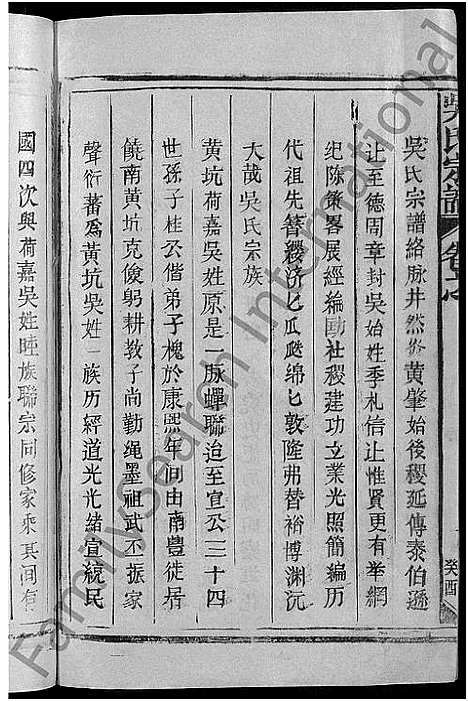 吳氏宗譜
癸酉
吳氏宗譜絡脉井然炎黄肇始后稷延傳泰伯遜
让至德周章封吴始姓季札信让惟贤更有举網
纪除條畧展經編勋社稷建功立業光照簡編历
代祖先簪纓济匕瓜瓞綿匕敦隆弗替裕博渊沅
大哉吳氏宗族
黄坑荷嘉吳姓原是一脉蟬聯迨至宣公三十四
世孙子桂公偕弟子槐於康熙年间由南豊徒居
饒南黄坑克儉躬耕教子尚勤绳墨祖武丕振家
聲衍蕃為黄坑吴姓一族历經道光光緒宣統民
國四次與荷嘉吴姓睦族聯宗同修家乘其间有
FamilySearch International